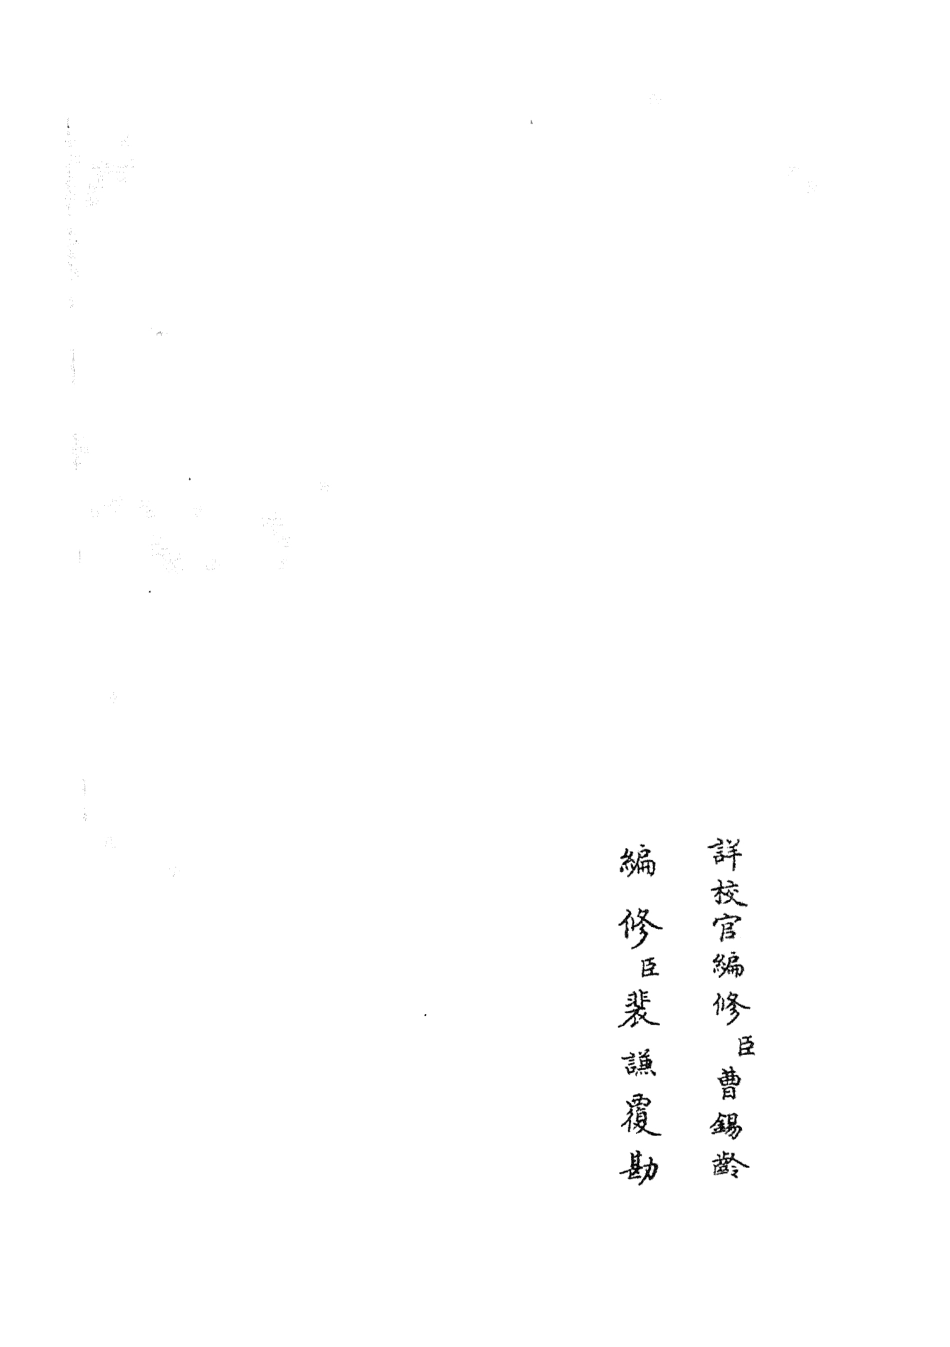 詳校官編修臣曹錫齡
編修臣裴謙覆勘